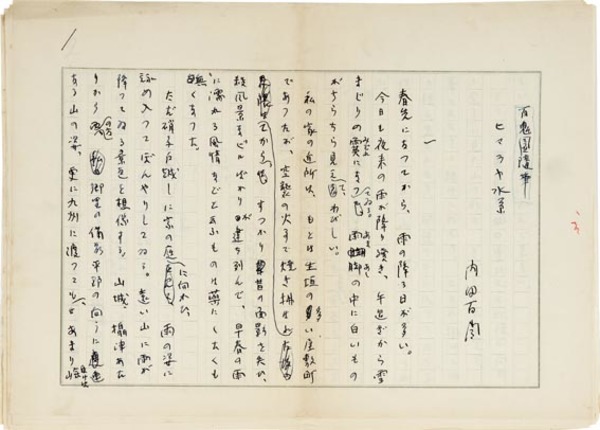 百鬼園随筆
ヒマラヤ水系
内田百閒
一
春先になつてから、雨の降る日が多い。
今日も夜来の雨が降り続き、午過ぎから雪
まじりの霙になつて、雨脚の中に白いもの
がちらちら見えて、わびしい。
私の家の近所は、もとは生垣の多い屋敷町
であつたが、空襲の火事で焼き拂
から すつかり昔の面影を失ひ、
殺風景なビルばかりが建ち列んで、早春の雨
に濡れる風情などと云ふものは薬にしたくも
無くなつた。
ただ硝子戸越しに家の庭に向かひ、雨の姿に
詠め入つてぼんやりしてゐる。遠い山に雨が
降つてゐる景色を想像する。山城、摂津あた
りから 郷里の備前平野の向うに
ある山の姿、更に九州に渡つて あまり
1